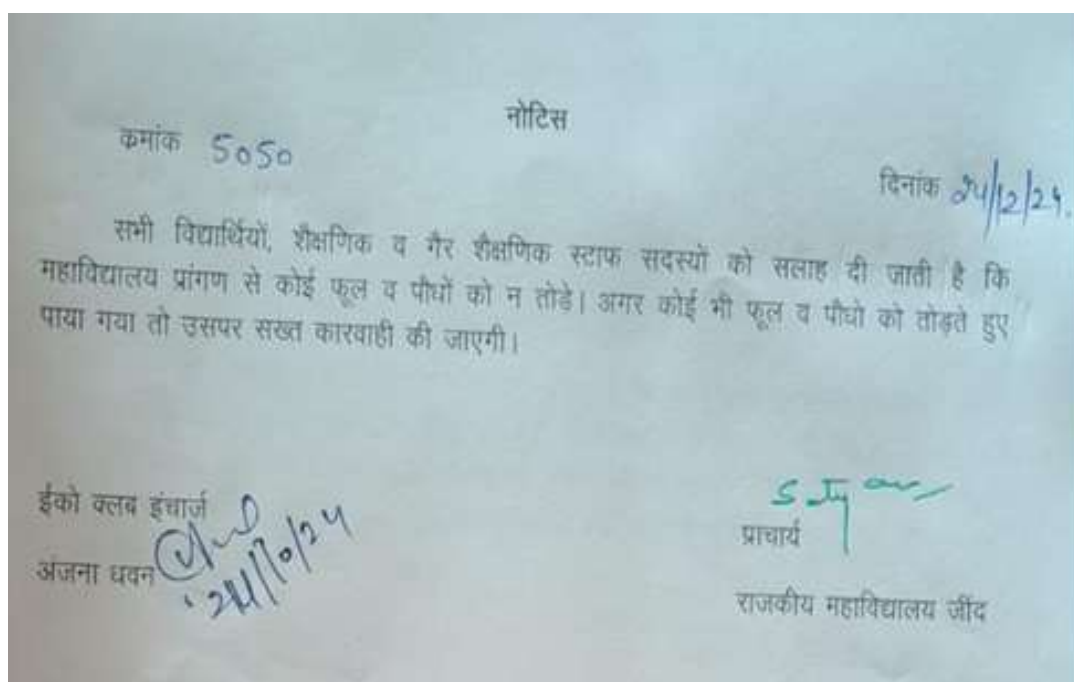 नोटिस
कमांक 5050
दिनांक 24/12/24.
सभी विद्यार्थियों, शैक्षणिक व गैर शैक्षणिक स्टाफ सदस्यों को सलाह दी जाती है कि
महाविद्यालय प्रांगण से कोई फूल व पौधों को न तोडे। अगर कोई भी फूल व पौधो को तोड़ते हुए
पाया गया तो उसपर सख्त कारवाही की जाएगी।
ईको क्लब इंचार्ज
अंजना धवन
24/10/24
प्राचार्य
राजकीय महाविद्यालय जींद